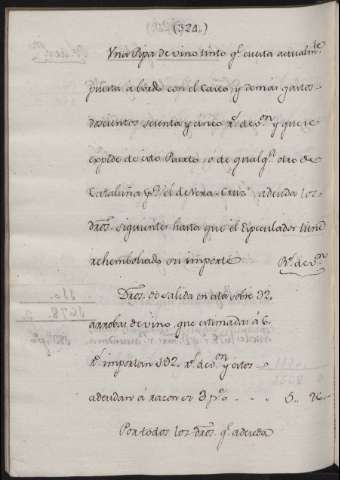 (324.)
Una Pipa de vino tinto q.e cuesta actualm.te
puesta à bordo con el Casco y demás gastos
doscientos sesenta y cinco r.s de v.n y que se
expide de este Puerto, ó de qualq.r otro de
Cataluña p.a el de Vera-Cruz adeuda los
dros. siguientes hasta que el Especulador tiene
rehembolsado su importe R.s de v.n
Dros. de salida en esto sobre 32.
arrobas de vino que estimadas á 6.
r.s importan 192. r.s de v.n y estos
adeudan á razon de 3 p.o - - - 5.
Por todos los dros. q.e adeuda